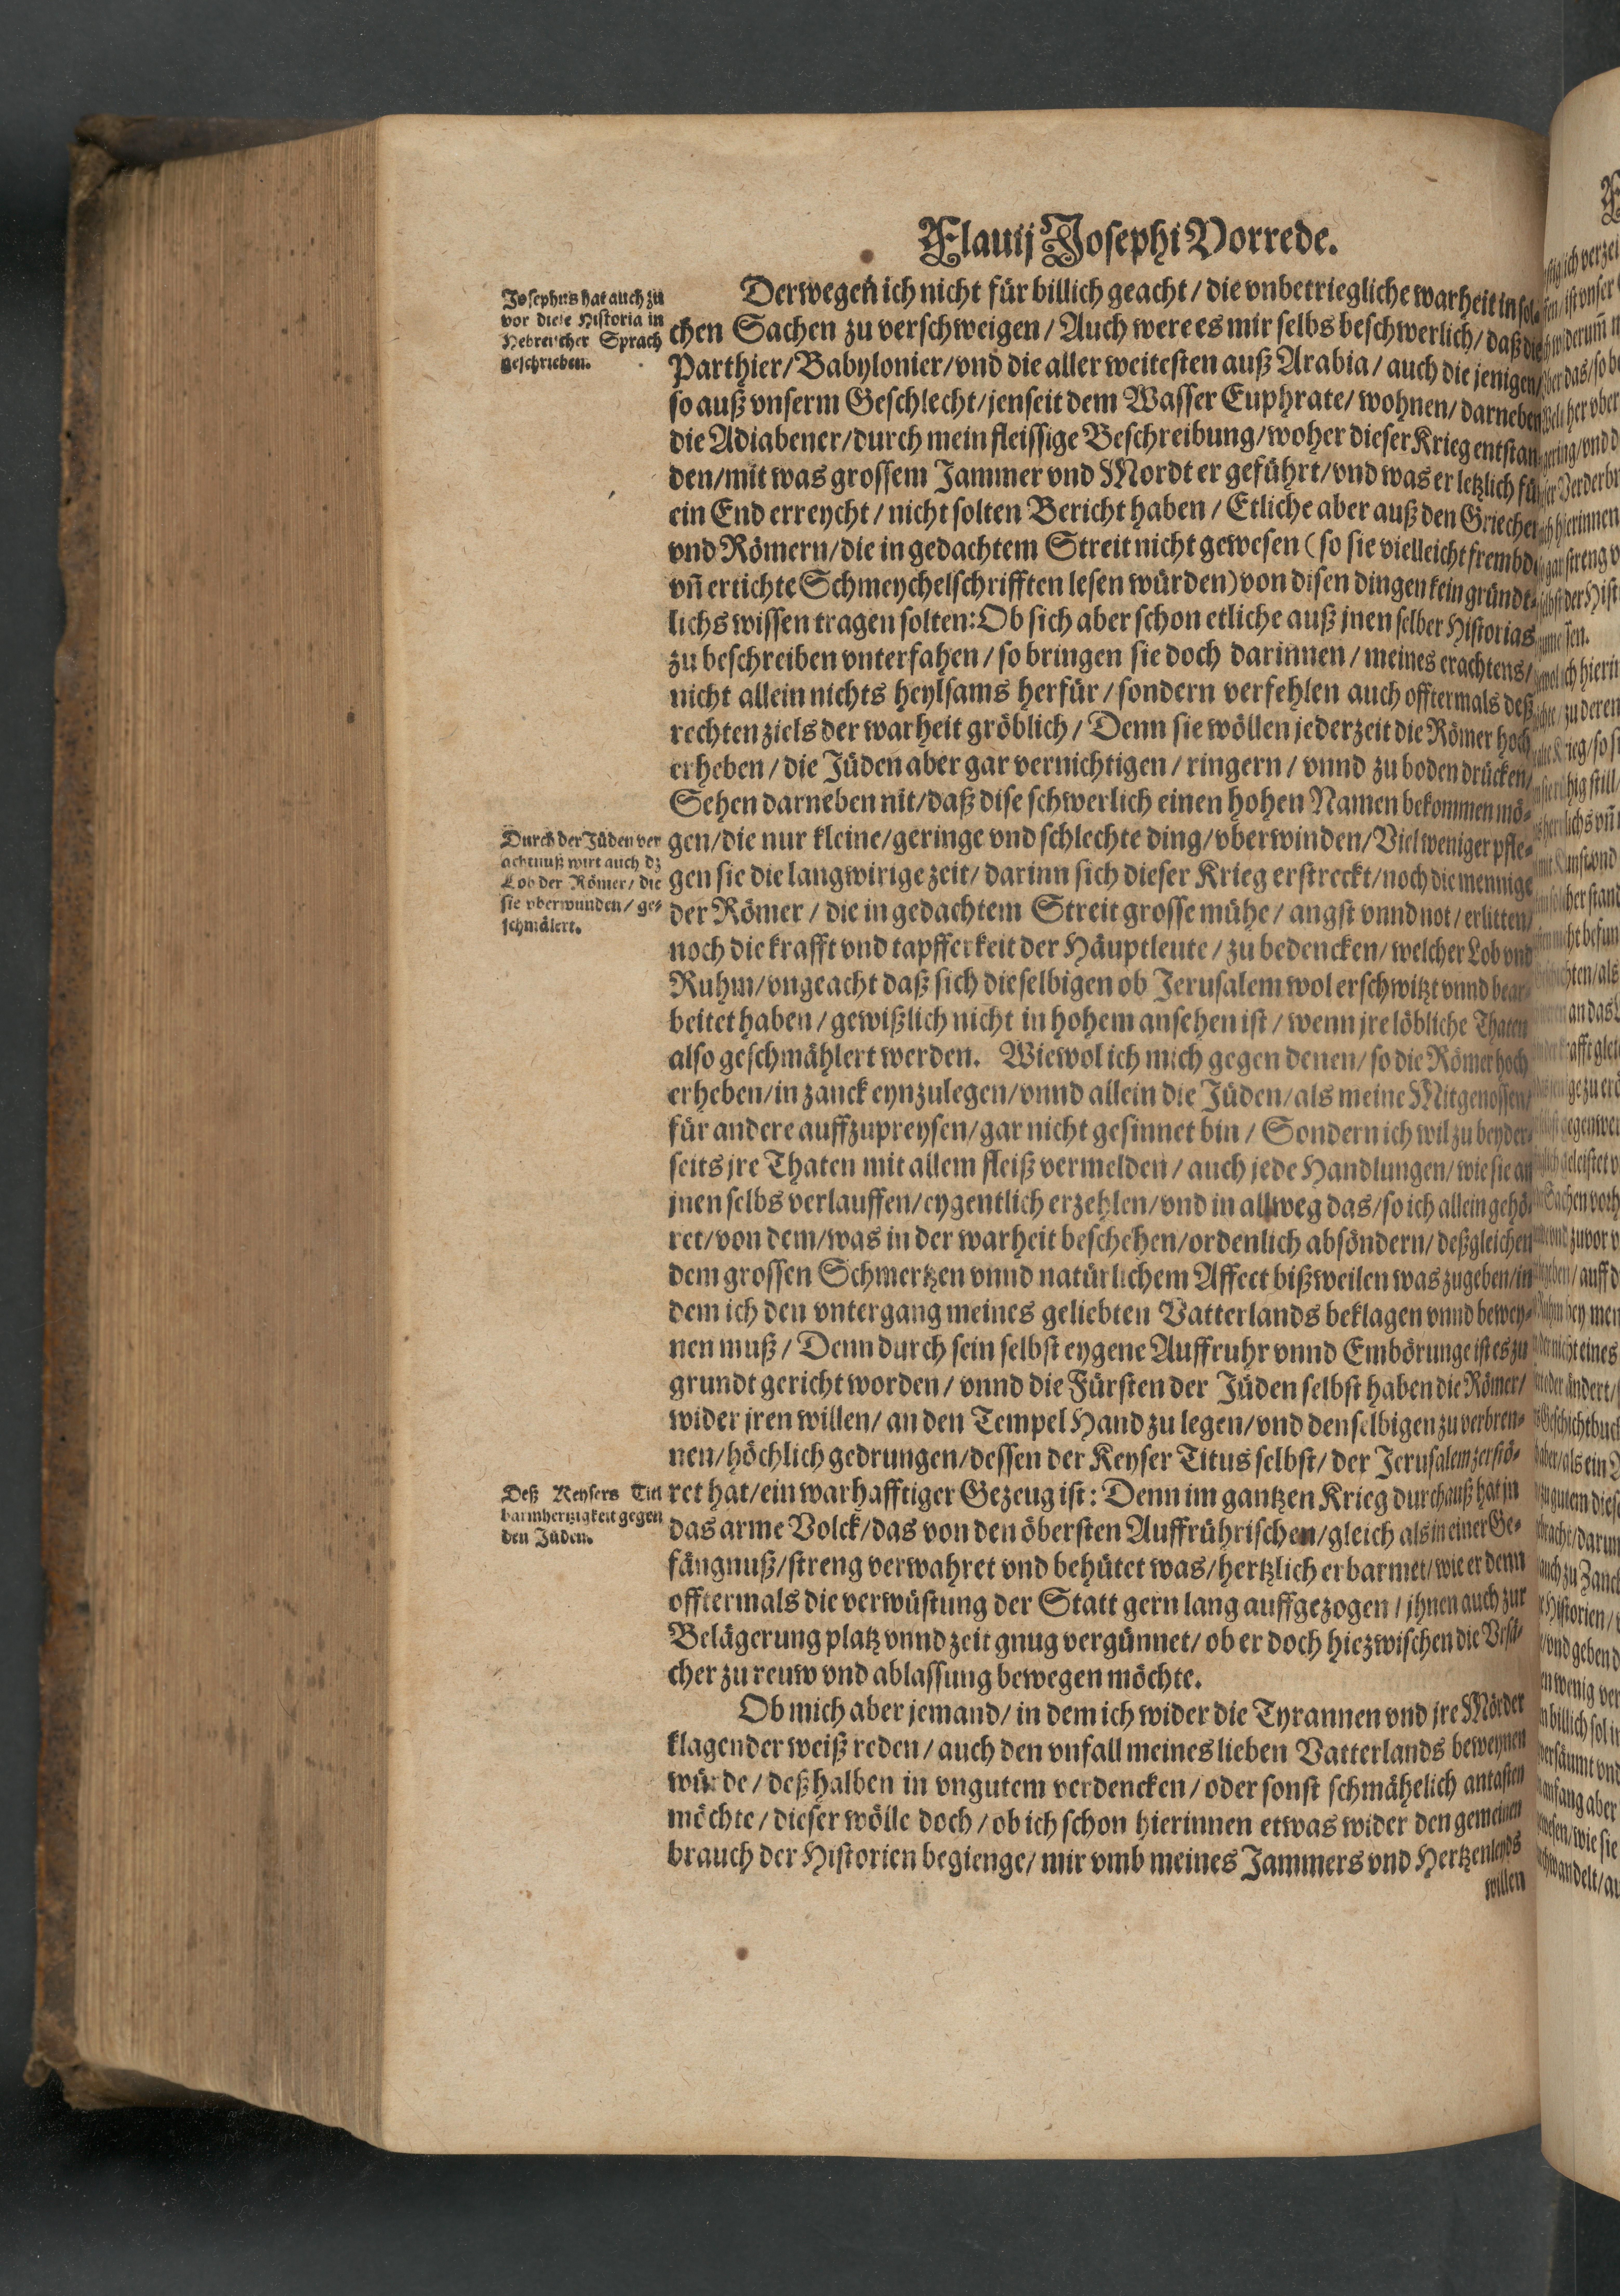 Flauij Josephi Vorrede.
Josephus hat auch zu
vor diese Historia in
Hebreischer Sprach
geschrieben.
Derwegen ich nicht für billich geacht / die vnbetriegliche warheit in sol-
chen Sachen zu verschweigen / Auch were es mir selbs beschwerlich / daß die
Parthier / Babylonier / vnd die aller weitesten auß Arabia / auch die jenigen /
so auß vnserm Geschlecht / jenseit dem Wasser Euphrate / wohnen / darneben
die Adiabener / durch mein fleissige Beschreibung / woher dieser Krieg entstan
den / mit was grossem Jammer vnd Mordt er geführt / vnd was er letzlich für
ein End erreycht / nicht solten Bericht haben / Etliche aber auß den Griechen
vnd Römern / die in gedachtem Streit nicht gewesen ( so sie vielleicht frembde
vñ ertichte Schmeychelschrifften lesen würden ) von disen dingen kein gründt-
lichs wissen tragen solten: Ob sich aber schon etliche auß jnen selber Historias
zu beschreiben vnterfahen / so bringen sie doch darinnen / meines erachtens /
nicht allein nichts heylsams herfür / sondern verfehlen auch offtermals deß
rechten ziels der warheit gröblich / Denn sie wöllen jederzeit die Römer hoch
erheben / die Jüden aber gar vernichtigen / ringern / vnnd zu boden drücken /
Sehen darneben nit / daß dise schwerlich einen hohen Namen bekommen mö-
Durch der Jüden ver
achtnuß wirt auch dz
Lob der Römer / die
sie vberwunden / ge-
schmälert.
gen / die nur kleine / geringe vnd schlechte ding / vberwinden / Viel weniger pfle-
gen sie die langwirige zeit / darinn sich dieser Krieg erstreckt / noch die mennige
der Römer / die in gedachtem Streit grosse mühe / angst vnnd not / erlitten /
noch die krafft vnd tapfferkeit der Häuptleute / zu bedencken / welcher Lob vnd
Ruhm / vngeacht daß sich dieselbigen ob Jerusalem wol erschwitzt vnnd bear-
beitet haben / gewißlich nicht in hohem ansehen ist / wenn jre löbliche Thaten
also geschmählert werden. Wiewol ich mich gegen denen / so die Römer hoch
erheben / in zanck eynzulegen / vnnd allein die Jüden / als meine Mitgenossen /
für andere auffzupreysen / gar nicht gesinnet bin / Sondern ich wil zu beyder-
seits jre Thaten mit allem fleiß vermelden / auch jede Handlungen / wie sie an
jnen selbs verlauffen / eygentlich erzehlen / vnd in allweg das / so ich allein gehö-
ret / von dem / was in der warheit beschehen / ordenlich absöndern / deßgleichen
dem grossen Schmertzen vnnd natürlichem Affect bißweilen was zugeben / in
dem ich den vntergang meines geliebten Vatterlands beklagen vnnd bewey-
nen muß / Denn durch sein selbst eygene Auffruhr vnnd Embörunge ist es zu
grundt gericht worden / vnnd die Fürsten der Jüden selbst haben die Römer /
wider jren willen / an den Tempel Hand zu legen / vnd denselbigen zu verbren-
nen / höchlich gedrungen / dessen der Keyser Titus selbst / der Jerusalem zerstö-
Deß Keysers Titi
barmhertzigkeit gegen
den Jüden.
ret hat / ein warhafftiger Gezeug ist: Denn im gantzen Krieg durchauß hat jn
das arme Volck / das von den öbersten Auffrührischen / gleich als in einer Ge-
fängnuß / streng verwahret vnd behütet was / hertzlich erbarmet / wie er denn
offtermals die verwüstung der Statt gern lang auffgezogen / jhnen auch zur
Belägerung platz vnnd zeit gnug vergünnet / ob er doch hiezwischen die Vrsä-
cher zu reuw vnd ablassung bewegen möchte.
Ob mich aber jemand / in dem ich wider die Tyrannen vnd jre Mörder
klagender weiß reden / auch den vnfall meines lieben Vatterlands beweynen
würde / deßhalben in vngutem verdencken / oder sonst schmähelich antasten
möchte / dieser wölle doch / ob ich schon hierinnen etwas wider den gemeinen
brauch der Historien begienge / mir vmb meines Jammers vnd Hertzenleyds
willen